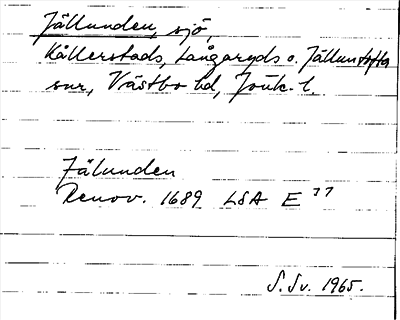 Jällunden, sjö,
Kållerstads, Långaryds o. Jälluntofta
snr, Västbo hd, Jönk. l.
Jälunden
Renov. 1689 LSA E 37
S. Sv. 1965.